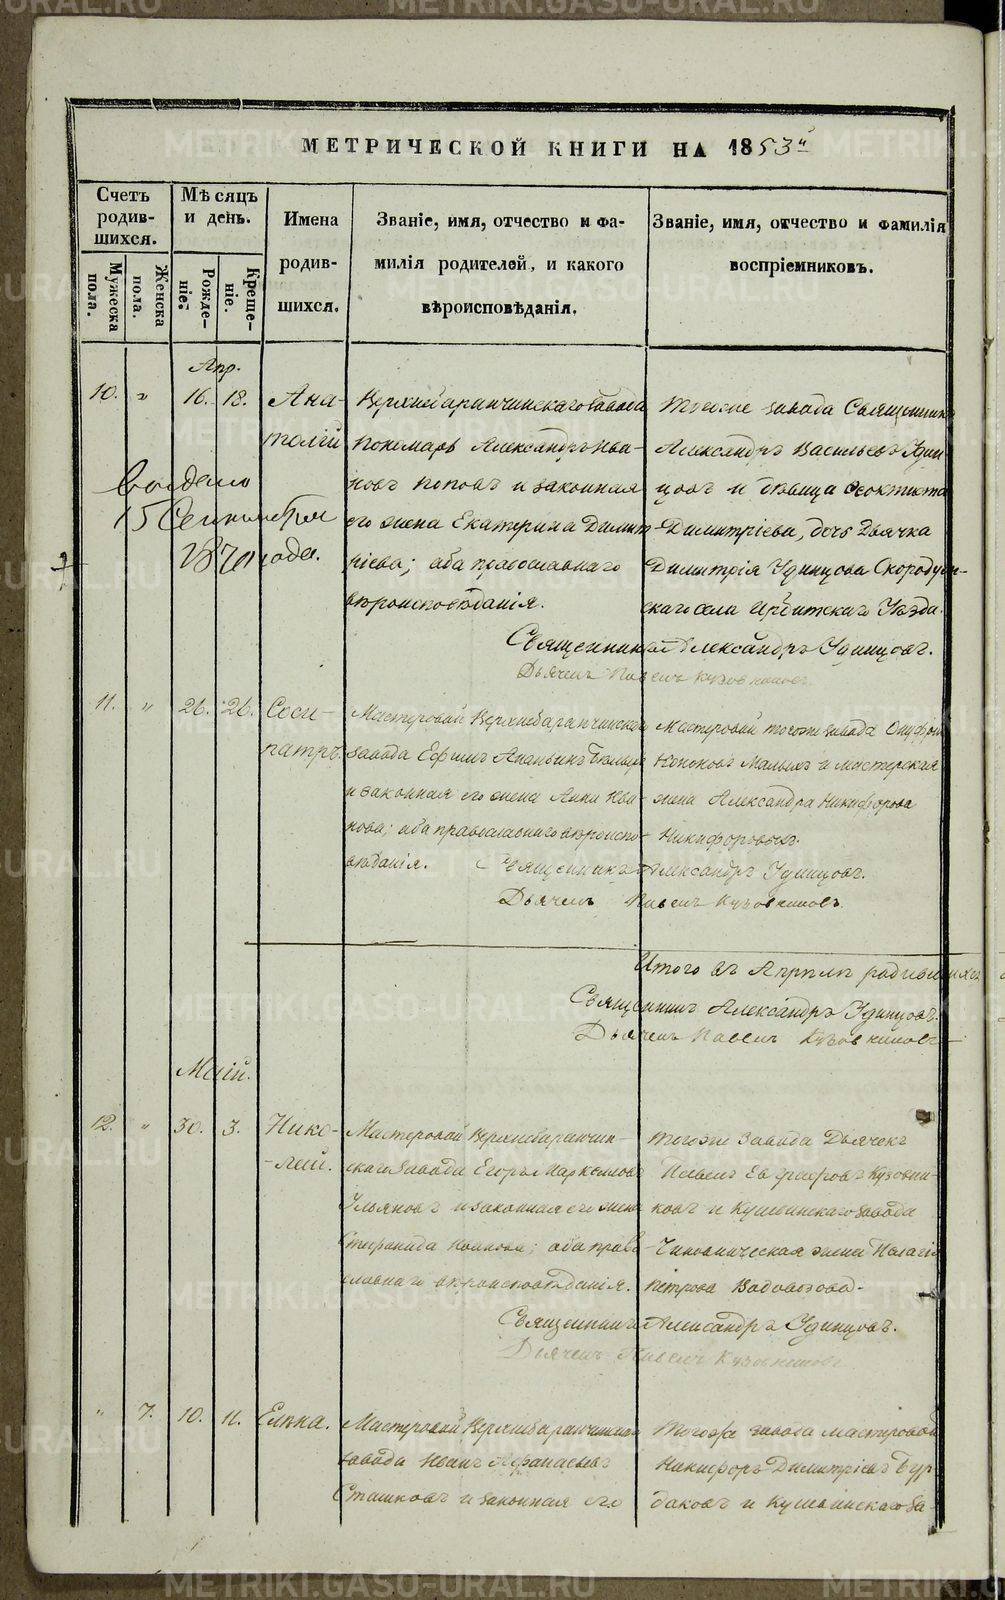 МЕТРИЧЕСКОЙ КНИГИ НА 1853й
Счетъ родившихся.
Мѣсяцъ и день.
Имена родившихся.
Званіе, имя, отчество и фамилія родителей, и какого вѣроисповѣданія.
Званіе, имя, отчество и фамилія воспріемниковъ.
Мужеска пола.
Женска пола.
Рожденіе.
Крещеніе.
Апр.
10. " 16. 18. Анатолій
Верхнебаранчинскаго завода
пономарь Александръ Ива-
новъ Поповъ и законная
его жена Екатерина Димит-
ріева; оба православнаго
вѣроисповѣданія.
Тогоже завода Священникъ
Александръ Васильевъ Удин-
цовъ и дѣвица Феоктиста
Димитріева, дочь Дьячка
Димитрія Удинцова Скородум-
скаго села Ирбитскаго Уѣзда.
Выдано
15 Сентября
187 года.
Священникъ Александръ Удинцовъ.
Дьячекъ Павелъ Кузовниковъ
11. " 26. 26. Соси-
патръ.
Мастеровой Верхнебаранчинскаго
завода Ефимъ Ананьинъ
и законная его жена Анна Ива-
нова; оба православнаго вѣроиспо-
вѣданія.
Мастеровой тогоже завода
Малыхъ и мастерская
жена Александра Никифорова
Никифоровыхъ.
Священникъ Александръ Удинцовъ.
Дьячекъ Павелъ Кузовниковъ.
Итого въ Апрѣлѣ родившихся
Священникъ Александръ Удинцовъ.
Дьячекъ Павелъ Кузовниковъ
Маій.
12. " 30. 3. Нико-
лай.
Мастеровой Верхнебаранчин-
скаго завода Егоръ Маркеловъ
Ульяновъ и законная его жена
Стефанида Иванова; оба право-
славнаго вѣроисповѣданія.
Тогоже завода Дьячекъ
Павелъ Кузовни-
ковъ и Кушвинскаго завода
Чиновническая жена Пелагія
Петрова Водовозова.
Священникъ Александръ Удинцовъ.
Дьячекъ Павелъ Кузовниковъ
" 7. 10. 11. Елена.
Мастеровой Верхнебаранчинскаго
завода Иванъ Афанасьевъ
Сташковъ и законная его
Тогоже завода мастеровой
Никифоръ Димитріевъ Бур-
даковъ и Кушвинскаго за-
METRIKI.GASO-URAL.RU